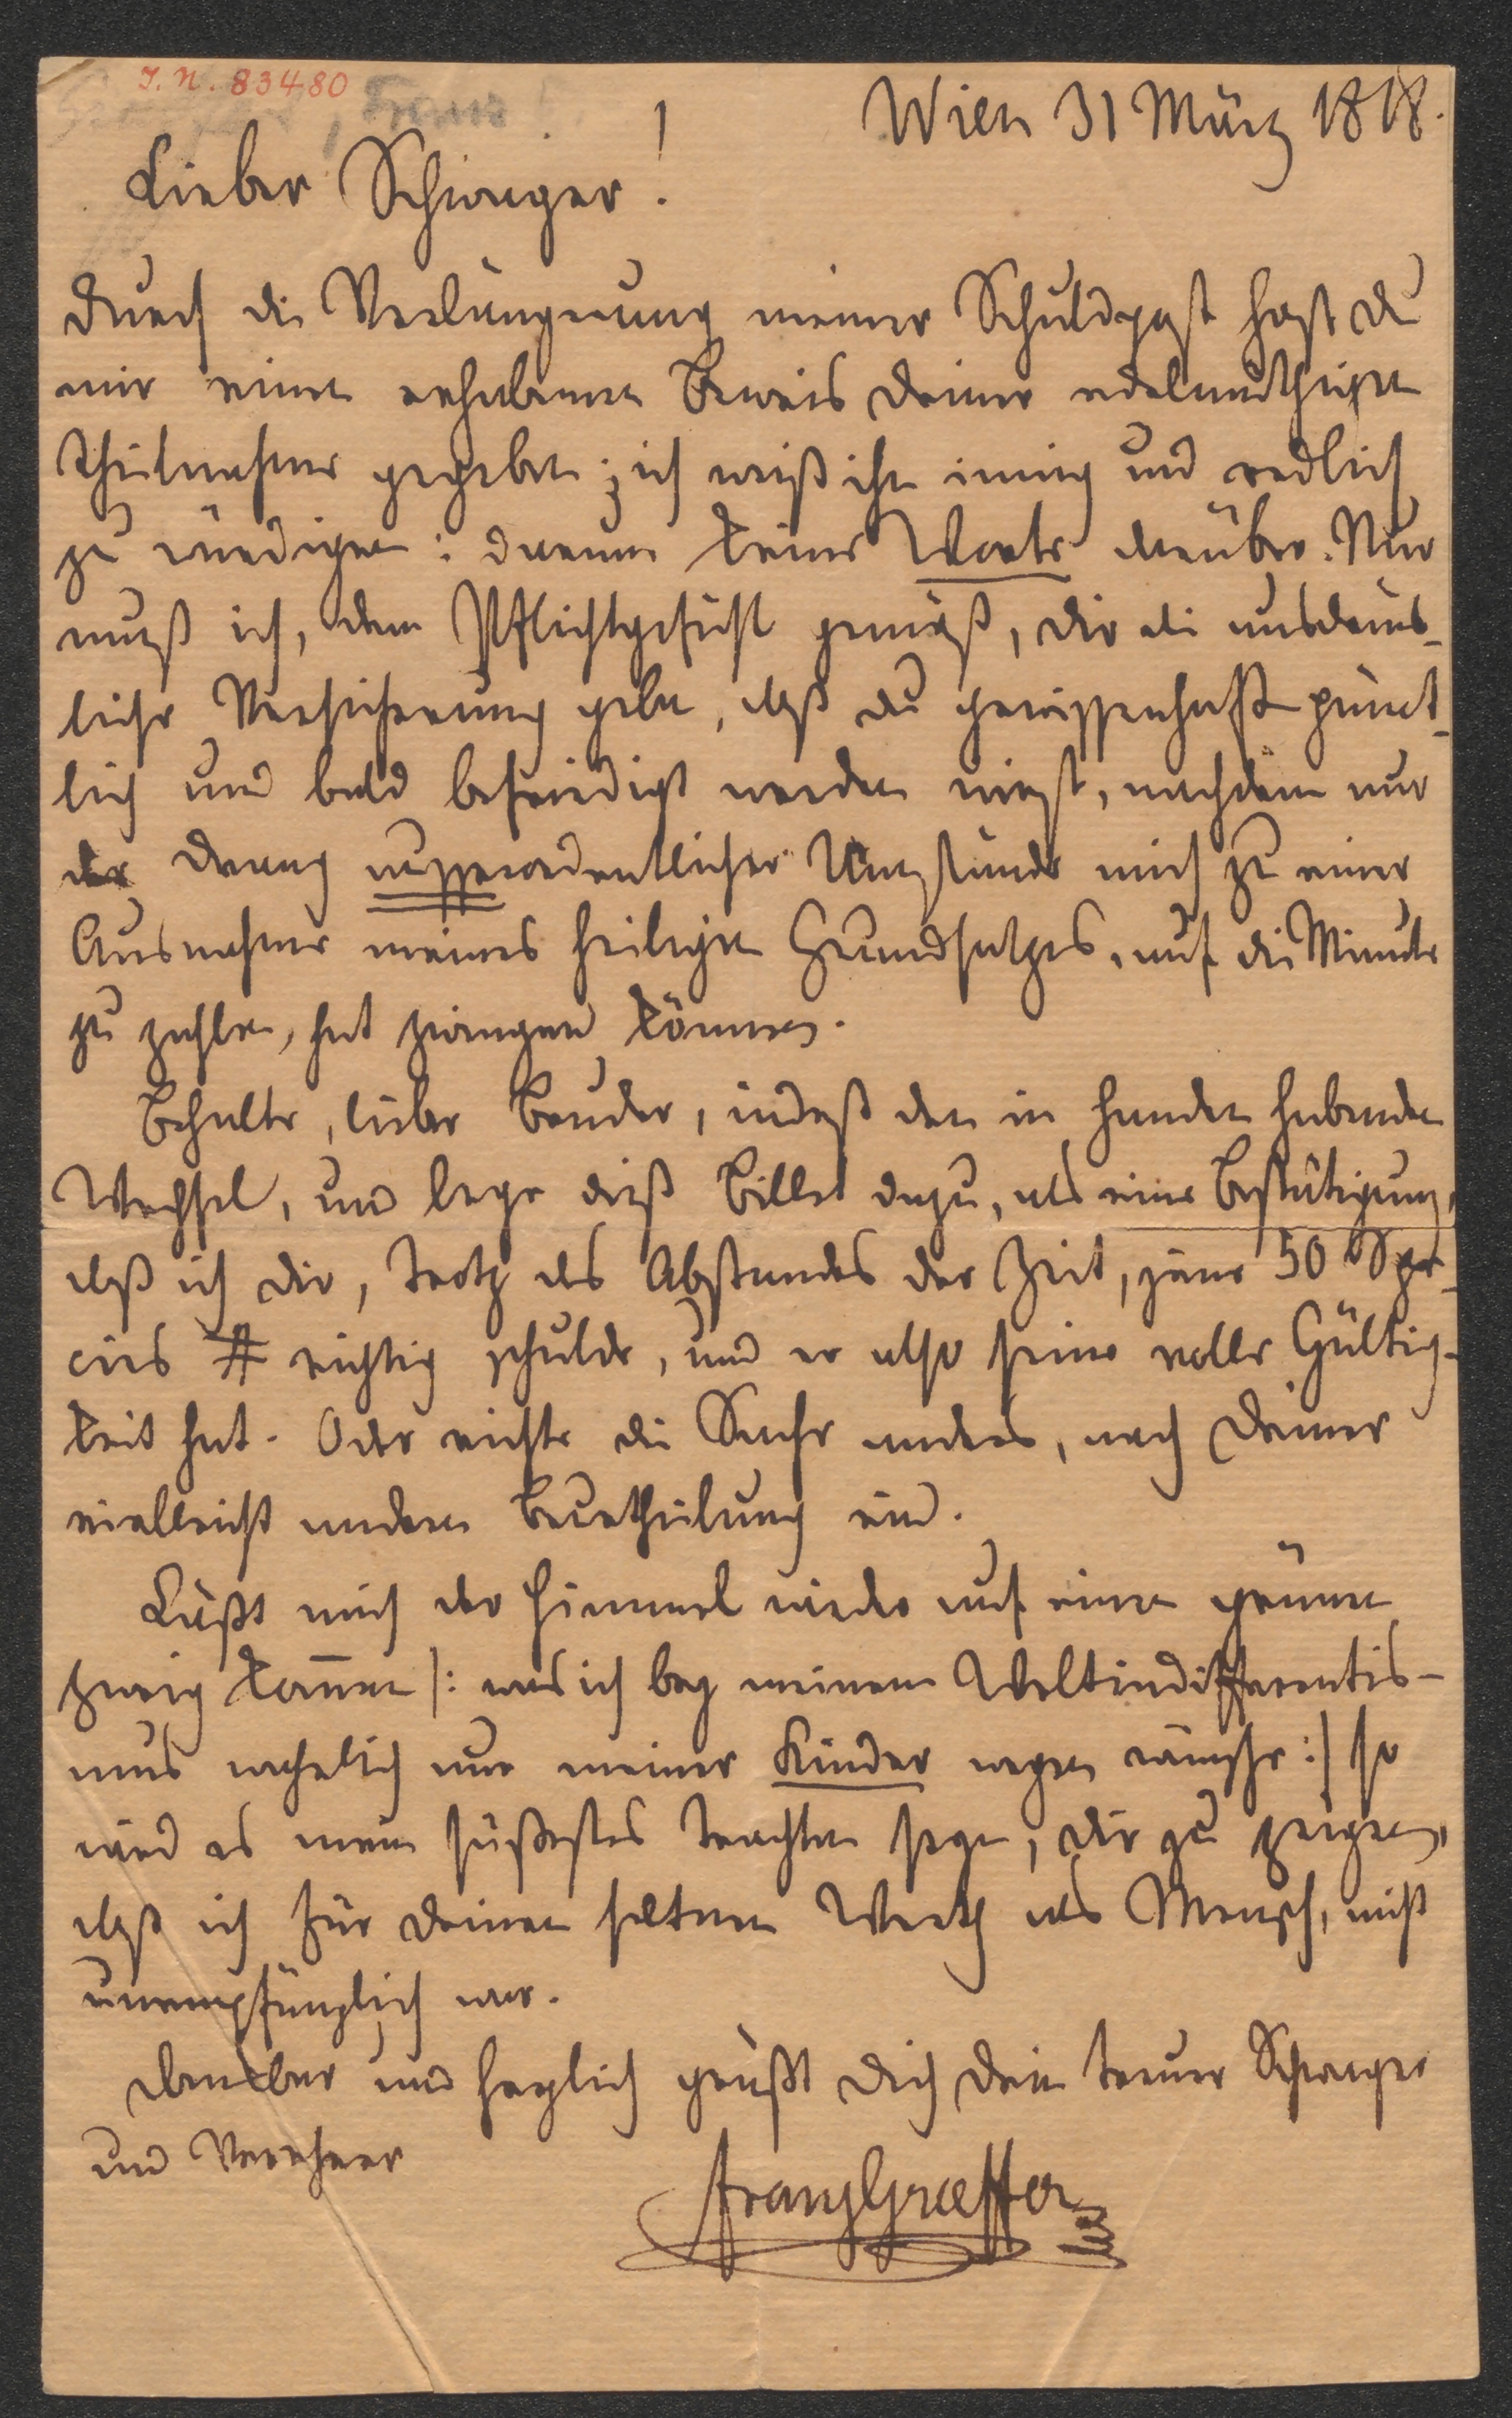 I. N. 83480
Wien 31 März 1818.
Lieber Schwager!
Durch die Verlängerung meiner Schuldpost hast du
mir einen erhabenen Beweis deiner edelmüthigen
Theilnahme gegeben; ich weiß ihn innig und redlich
zu würdigen: darum keine Worte darüber. Nur
muß ich, dem Pflichtgefühl gemäß, dir die ausdrük-
liche Versicherung geben, daß du gewissenhaft pünct-
lich und bald befriedigt werden wirst, nachdem nur
der Drang ausserordentlicher Umstände mich zu einer
Ausnahme meines heiligen Grundsatzes, auf die Minute
zu zahlen, hat zwingen können.
Behalte, lieber Bruder, indeß den in Handen habenden
Wechsel, und lege dieß Billet dazu, als eine Bestätigung,
daß ich dir, trotz des Abstandes der Zeit, jene 50 Spe-
cies # richtig schulde, und er also seine volle Gültig-
keit hat. Oder richte die Sache anders, nach deiner
vielleicht andern Beurtheilung ein.
Läßt mich der Himmel wieder auf einen grünen
Zweig kom̄en /: was ich bey meinem Weltindifferentis-
mus wahrlich nur meiner Kinder wegen wünsche :/ so
wird es mein süßestes Trachten seyn, dir zu zeigen,
daß ich für deinen seltnen Werth als Mensch, nicht
unempfänglich war.
Dankbar und herzlich grüßt dich dein treuer Schwager
und Verehrer
Franz Graeffer